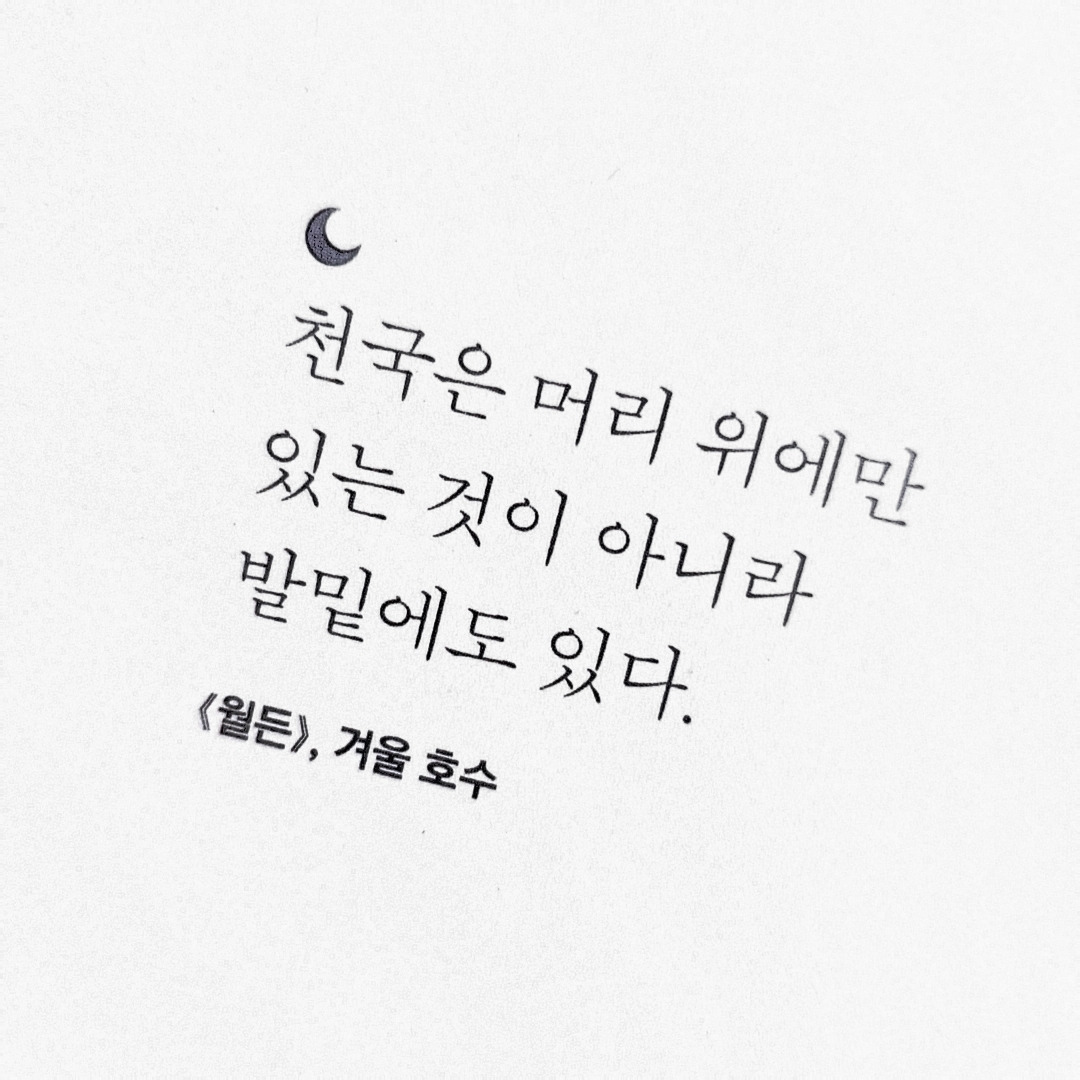 천국은 머리 위에만
있는 것이 아니라
발밑에도 있다.
《월든》, 겨울 호수